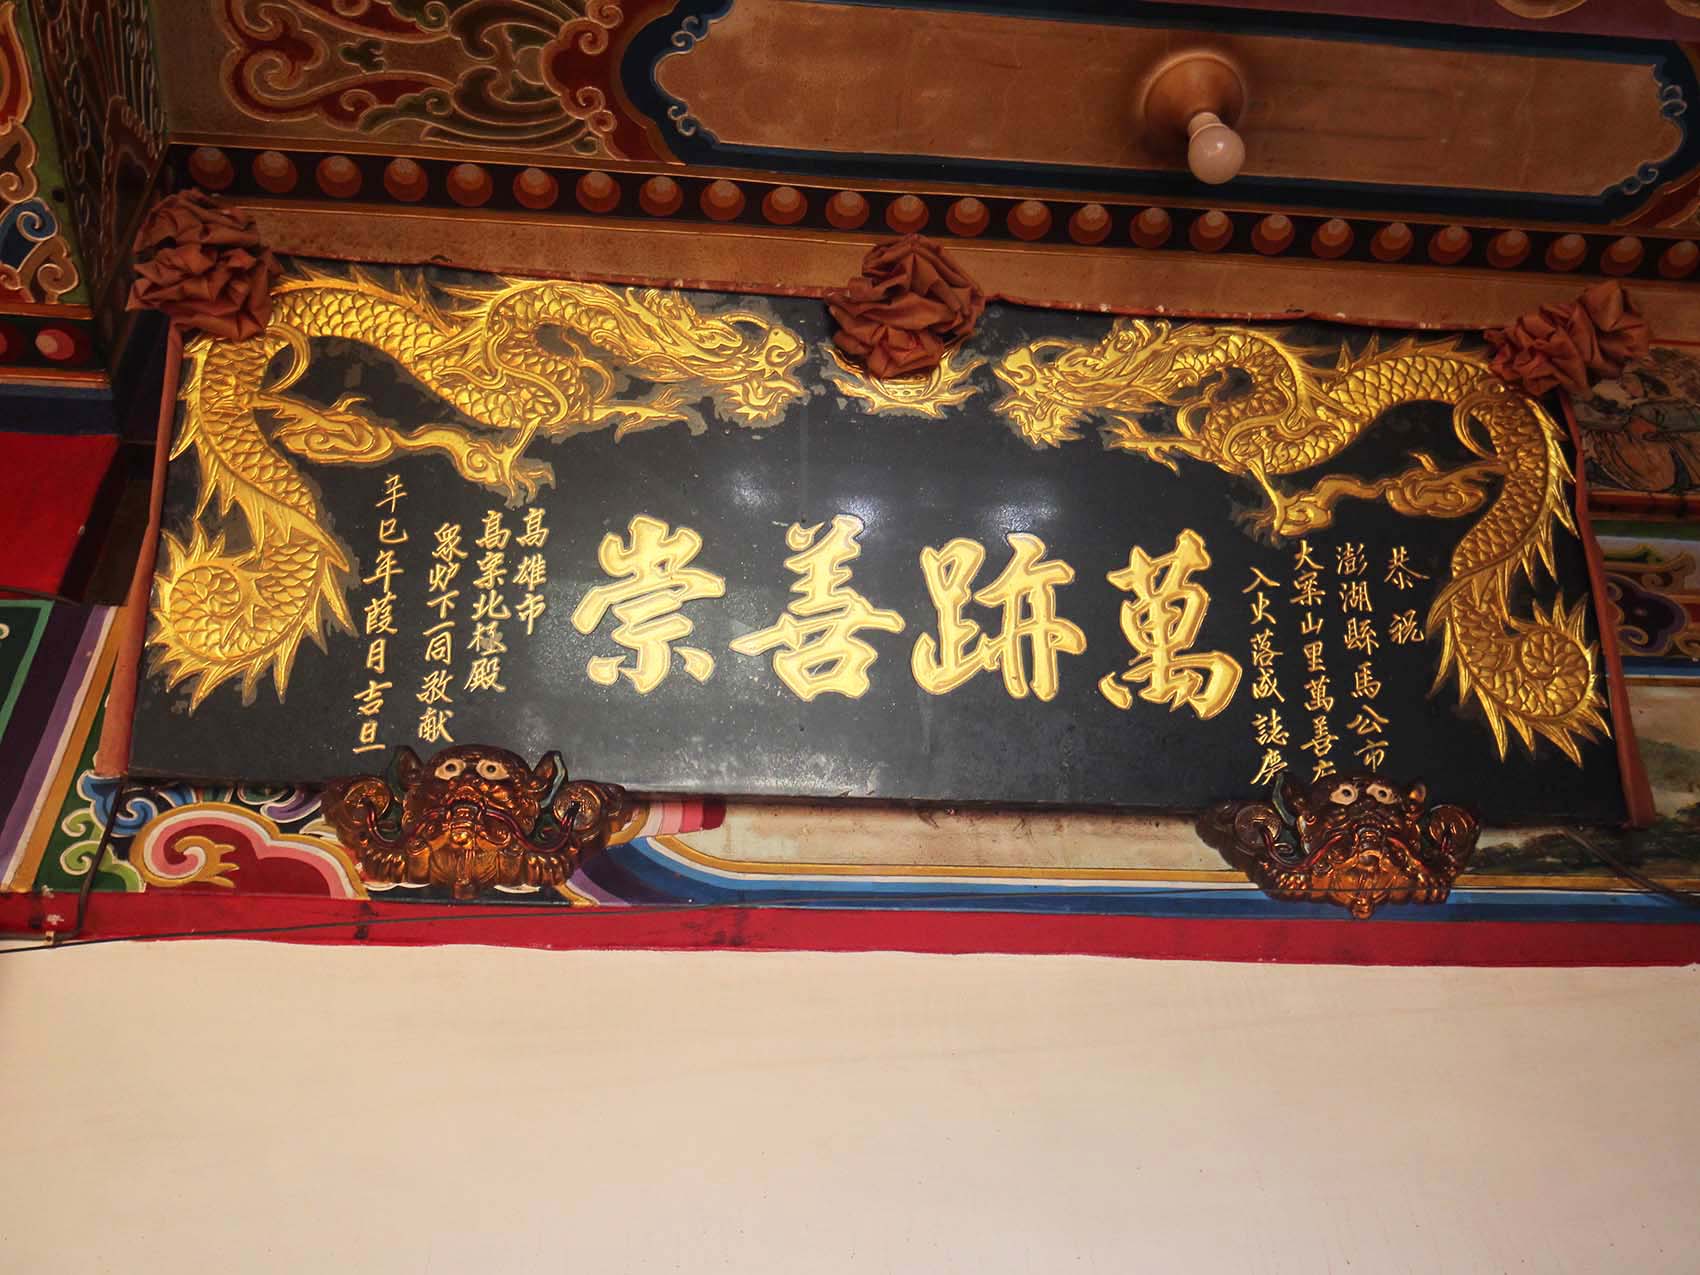 恭祝
澎湖縣馬公市
大案山里萬善
入火落成誌慶
萬跡善崇
高雄市
高案北極殿
眾炉下一同敬献
辛巳年葭月吉旦